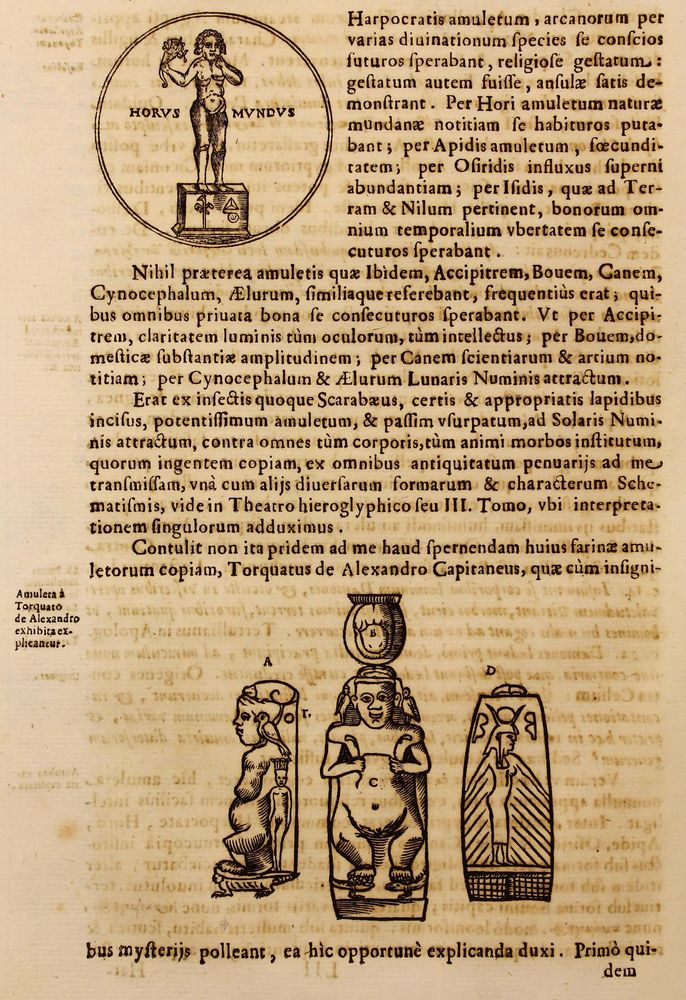 Harpocratis amuletum, arcanorum per
varias diuinationum ſpecies ſe conſcios
futuros ſperabant, religioſe geſtatum:
geſtatum autem fuiſſe, anſulæ ſatis de-
monſtrant. Per Hori amuletum naturæ
mundanæ notitiam ſe habituros puta-
bant; per Apidis amuletum, fœcundi-
tatem; per Oſiridis influxus ſuperni
abundantiam; per Iſidis, quæ ad Ter-
ram & Nilum pertinent, bonorum om-
nium temporalium vbertatem ſe conſe-
cuturos ſperabant.
HORVS MVNDVS
Nihil præterea amuletis quæ Ibidem, Accipitrem, Bouem, Canem,
Cynocephalum, Ælurum, ſimiliaque referebant, frequentiùs erat; qui-
bus omnibus priuata bona ſe conſecuturos ſperabant. Vt per Accipi-
trem, claritatem luminis tùm oculorum, tùm intellectus; per Bouem, do-
meſticæ ſubſtantiæ amplitudinem; per Canem ſcientiarum & artium no-
titiam; per Cynocephalum & Ælurum Lunaris Numinis attractum.
Erat ex inſectis quoque Scarabæus, certis & appropriatis lapidibus
inciſus, potentiſſimum amuletum, & paſſim vſurpatum, ad Solaris Numi-
nis attractum, contra omnes tùm corporis, tùm animi morbos inſtitutum,
quorum ingentem copiam, ex omnibus antiquitatum penuarijs ad me
tranſmiſſam, vnà cum alijs diuerſarum formarum & characterum Sche-
matiſmis, vide in Theatro hieroglyphico ſeu III. Tomo, vbi interpreta-
tionem ſingulorum adduximus.
Contulit non ita pridem ad me haud ſpernendam huius farinæ amu-
letorum copiam, Torquatus de Alexandro Capitaneus, quæ cùm inſigni-
Amuleta à
Torquato
de Alexandro
exhibita ex-
plicantur.
A
B
C
D
bus myſterijs polleant, ea hìc opportunè explicanda duxi. Primò qui-
dem